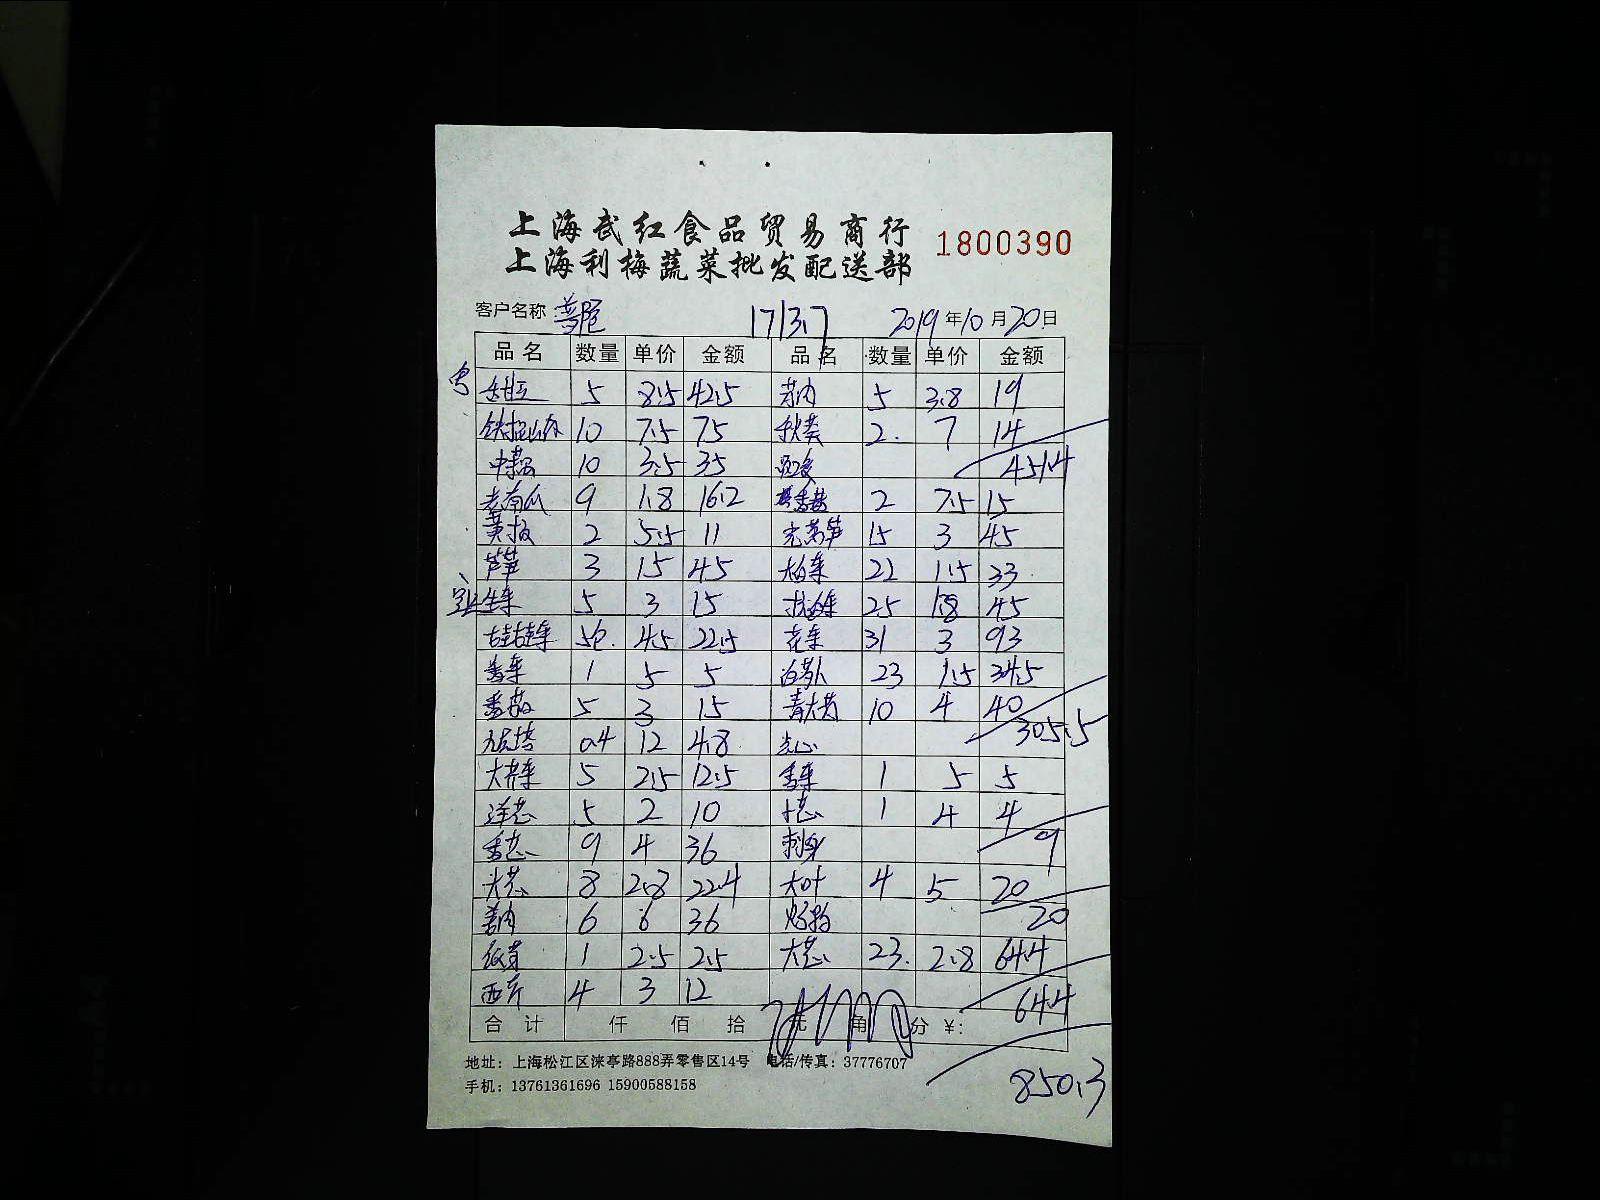 上海武红食品贸易商行
上海利梅蔬菜批发配送部
1800390
客户名称 17137 2019年10月20日
品名 数量 单价 金额 品名 数量 单价 金额
5 8.5 42.5 5 3.8 19
铁棍山药 10 7.5 75 秋葵 2. 7 14
10 3.5 35 451.4
老南瓜 9 1.8 16.2 2 7.5 15
2 5.5 11 光莴笋 15 3 45
芦笋 3 15 45 大白菜 22 1.5 33
生菜 5 3 15 25 1.8 45
4.5 22.5 花菜 31 3 93
香菜 1 5 5 白萝卜 23 1.5 34.5
番茄 5 3 15 10 4 40
九层塔 0.4 12 4.8 点心 305.5
5 2.5 12.5 香菜 1 5 5
洋葱 5 2 10 1 4 4
香葱 9 4 36 刺身 9
大葱 8 2.8 22.4 大叶 4 5 20
姜肉 6 6 36 20
1 2.5 2.5 大葱 23. 2.8 64.4
西芹 4 3 12 64.4
合计 仟 佰 拾 元 角 分 ¥:
地址: 上海松江区涞亭路888弄零售区14号 电话/传真: 37776707
手机: 13761361696 15900588158
850.3